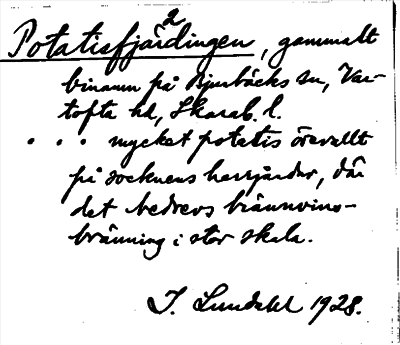 Potatisfjärdingen, gammalt
binamn på Bjurbäcks sn, Var-
tofta hd, Skarab. l.
. . . mycket potatis överallt
på socknens herrgårdar, där
det bedrevs brännvins-
bränning i stor skala.
J. Lundahl 1928.